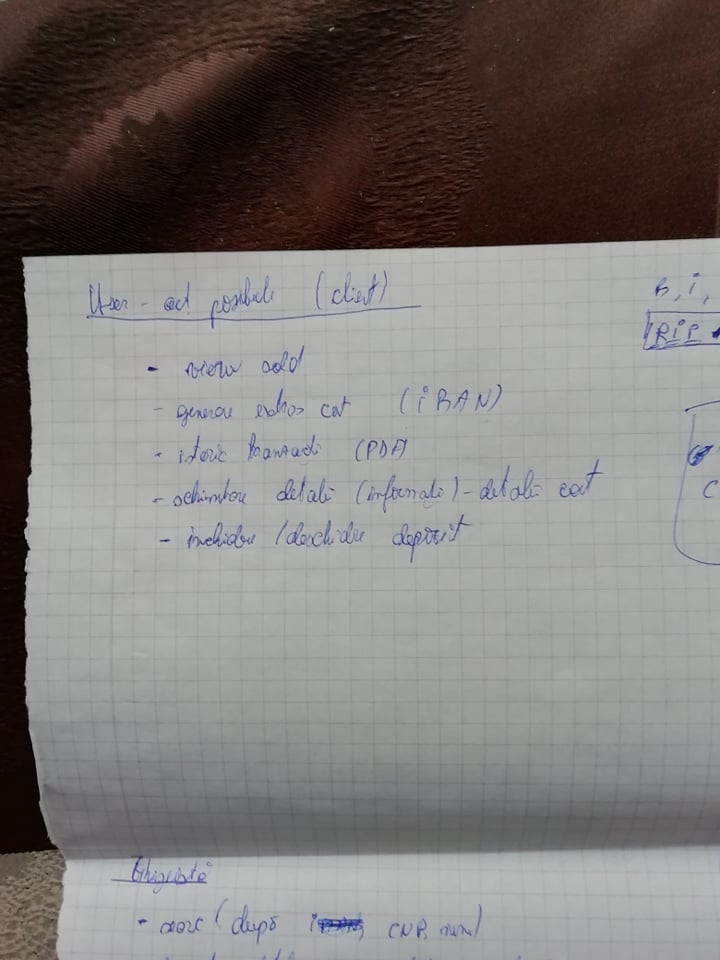 User - act posibile (client)
B, i,
RIP
- view sold
- generare extras cont (iBAN)
- istoric tranzactii (PDF)
- schimbare detalii (informatii) - detalii cont
C
- inchidere / deschidere depozit
Ghiseistă
- search (după CNP, nume)